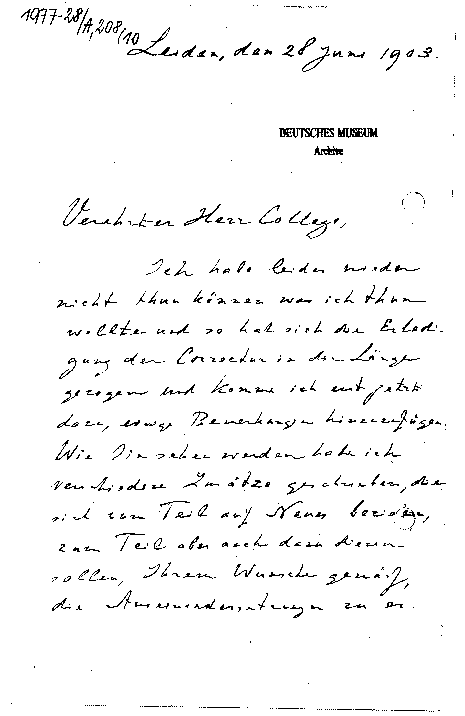 1977-28/A,208/10
Leiden, den 28 Juni 1903.
DEUTSCHES MUSEUM
Archive
Verehrter Herr College,
Ich habe leider wieder
nicht thun können was ich thun
wollte und so hat sich die Erledi-
gung der Correctur in die Länge
gezogen und komme ich erst jetzt
dazu, einige Bemerkungen hinzuzufügen.
Wie Sie sehen werden habe ich
verschiedene Zusätze geschrieben, die
sich zum Teil auf Neues beziehen,
zum Teil aber auch dazu dienen
sollen, Ihrem Wunsche gemäß,
die Auseinandersetzungen zu er-